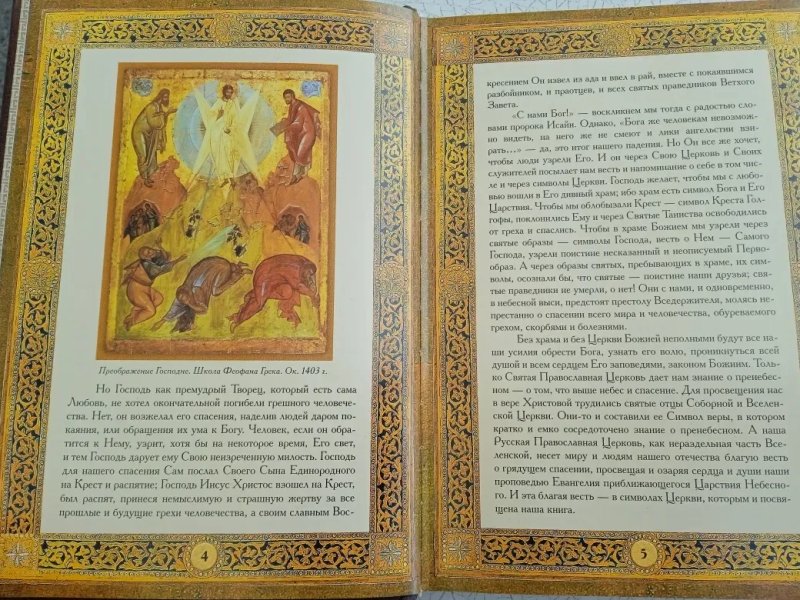 Преображение Господне. Школа Феофана Грека. Ок. 1403 г.
Но Господь как премудрый Творец, который есть сама
Любовь, не хотел окончательной погибели грешного человече-
ства. Нет, он возжелал его спасения, наделив людей даром по-
каяния, или обращения их ума к Богу. Человек, если он обра-
тится к Нему, узрит, хотя бы на некоторое время, Его свет,
и тем Господь дарует ему Свою неизреченную милость. Господь
для нашего спасения Сам послал Своего Сына Единородного
на Крест и распятие; Господь Иисус Христос взошел на Крест,
был распят, принеся немыслимую и страшную жертву за все
прошлые и будущие грехи человечества, а своим славным Вос-
4
кресением Он извел из ада и ввел в рай, вместе с покаявшимся
разбойником, и праотцев, и всех святых праведников Ветхого
Завета.
«С нами Бог!» — воскликнем мы тогда с радостью сло-
вами пророка Исайи. Однако, «Бога же человекам невозмож-
но видеть, на него же не смеют и лики ангельстии взи-
рать...» — да, это итог нашего падения. Но Он все же хочет,
чтобы люди узрели Его. И он через Свою Церковь и Своих
служителей посылает нам весть и напоминание о себе в том чис-
ле и через символы Церкви. Господь желает, чтобы мы с любо-
вью вошли в Его дивный храм; ибо храм есть символ Бога и Его
Царствия. Чтобы мы облобызали Крест — символ Креста Гол-
гофы, поклонились Ему и через Святые Таинства освободились
от греха и спаслись. Чтобы в храме Божием мы узрели через
святые образы — символы Господа, весть о Нем — Самого
Господа, узрели поистине несказанный и неописуемый Перво-
образ. А через образы святых, пребывающих в храме, их сим-
волы, осознали бы, что святые — поистине наши друзья; свя-
тые праведники не умерли, о нет! Они с нами, и одновременно,
в небесной выси, предстоят престолу Вседержителя, молясь не-
престанно о спасении всего мира и человечества, обуреваемого
грехом, скорбями и болезнями.
Без храма и без Церкви Божией неполными будут все на-
ши усилия обрести Бога, узнать его волю, проникнуться всей
душой и всем сердцем Его заповедями, законом Божиим. Толь-
ко Святая Православная Церковь дает нам знание о пренебес-
ном — о том, что выше небес и спасение. Для просвещения нас
в вере Христовой трудились святые отцы Соборной и Вселен-
ской Церкви. Они-то и составили ее Символ веры, в котором
кратко и емко сосредоточено знание о пренебесном. А наша
Русская Православная Церковь, как нераздельная часть Все-
ленской, несет миру и людям нашего отечества благую весть
о грядущем спасении, просвещая и озаряя сердца и души наши
проповедью Евангелия приближающегося Царствия Небесно-
го. И эта благая весть — в символах Церкви, которым и посвя-
щена наша книга.
5